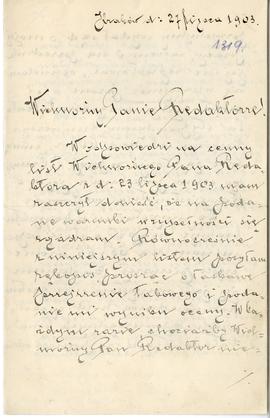 Kraków d: 27 lipca 1903.
1319.
Wielmożny Panie Redaktorze!
W odpowiedzi na cenny
list Wielmożnego Pana Reda-
ktora z d: 23 lipca 1903 mam
zaszczyt donieść, że na poda-
ne warunki w zupełności się
zgadzam. Równocześnie
z niniejszym listem posyłam
rękopis prosząc o łaskawe
przejrzenie takowego i poda-
nie mi wyniku oceny. W ka-
żdym razie chociażby Wiel-
możny Pan Redaktor nie-